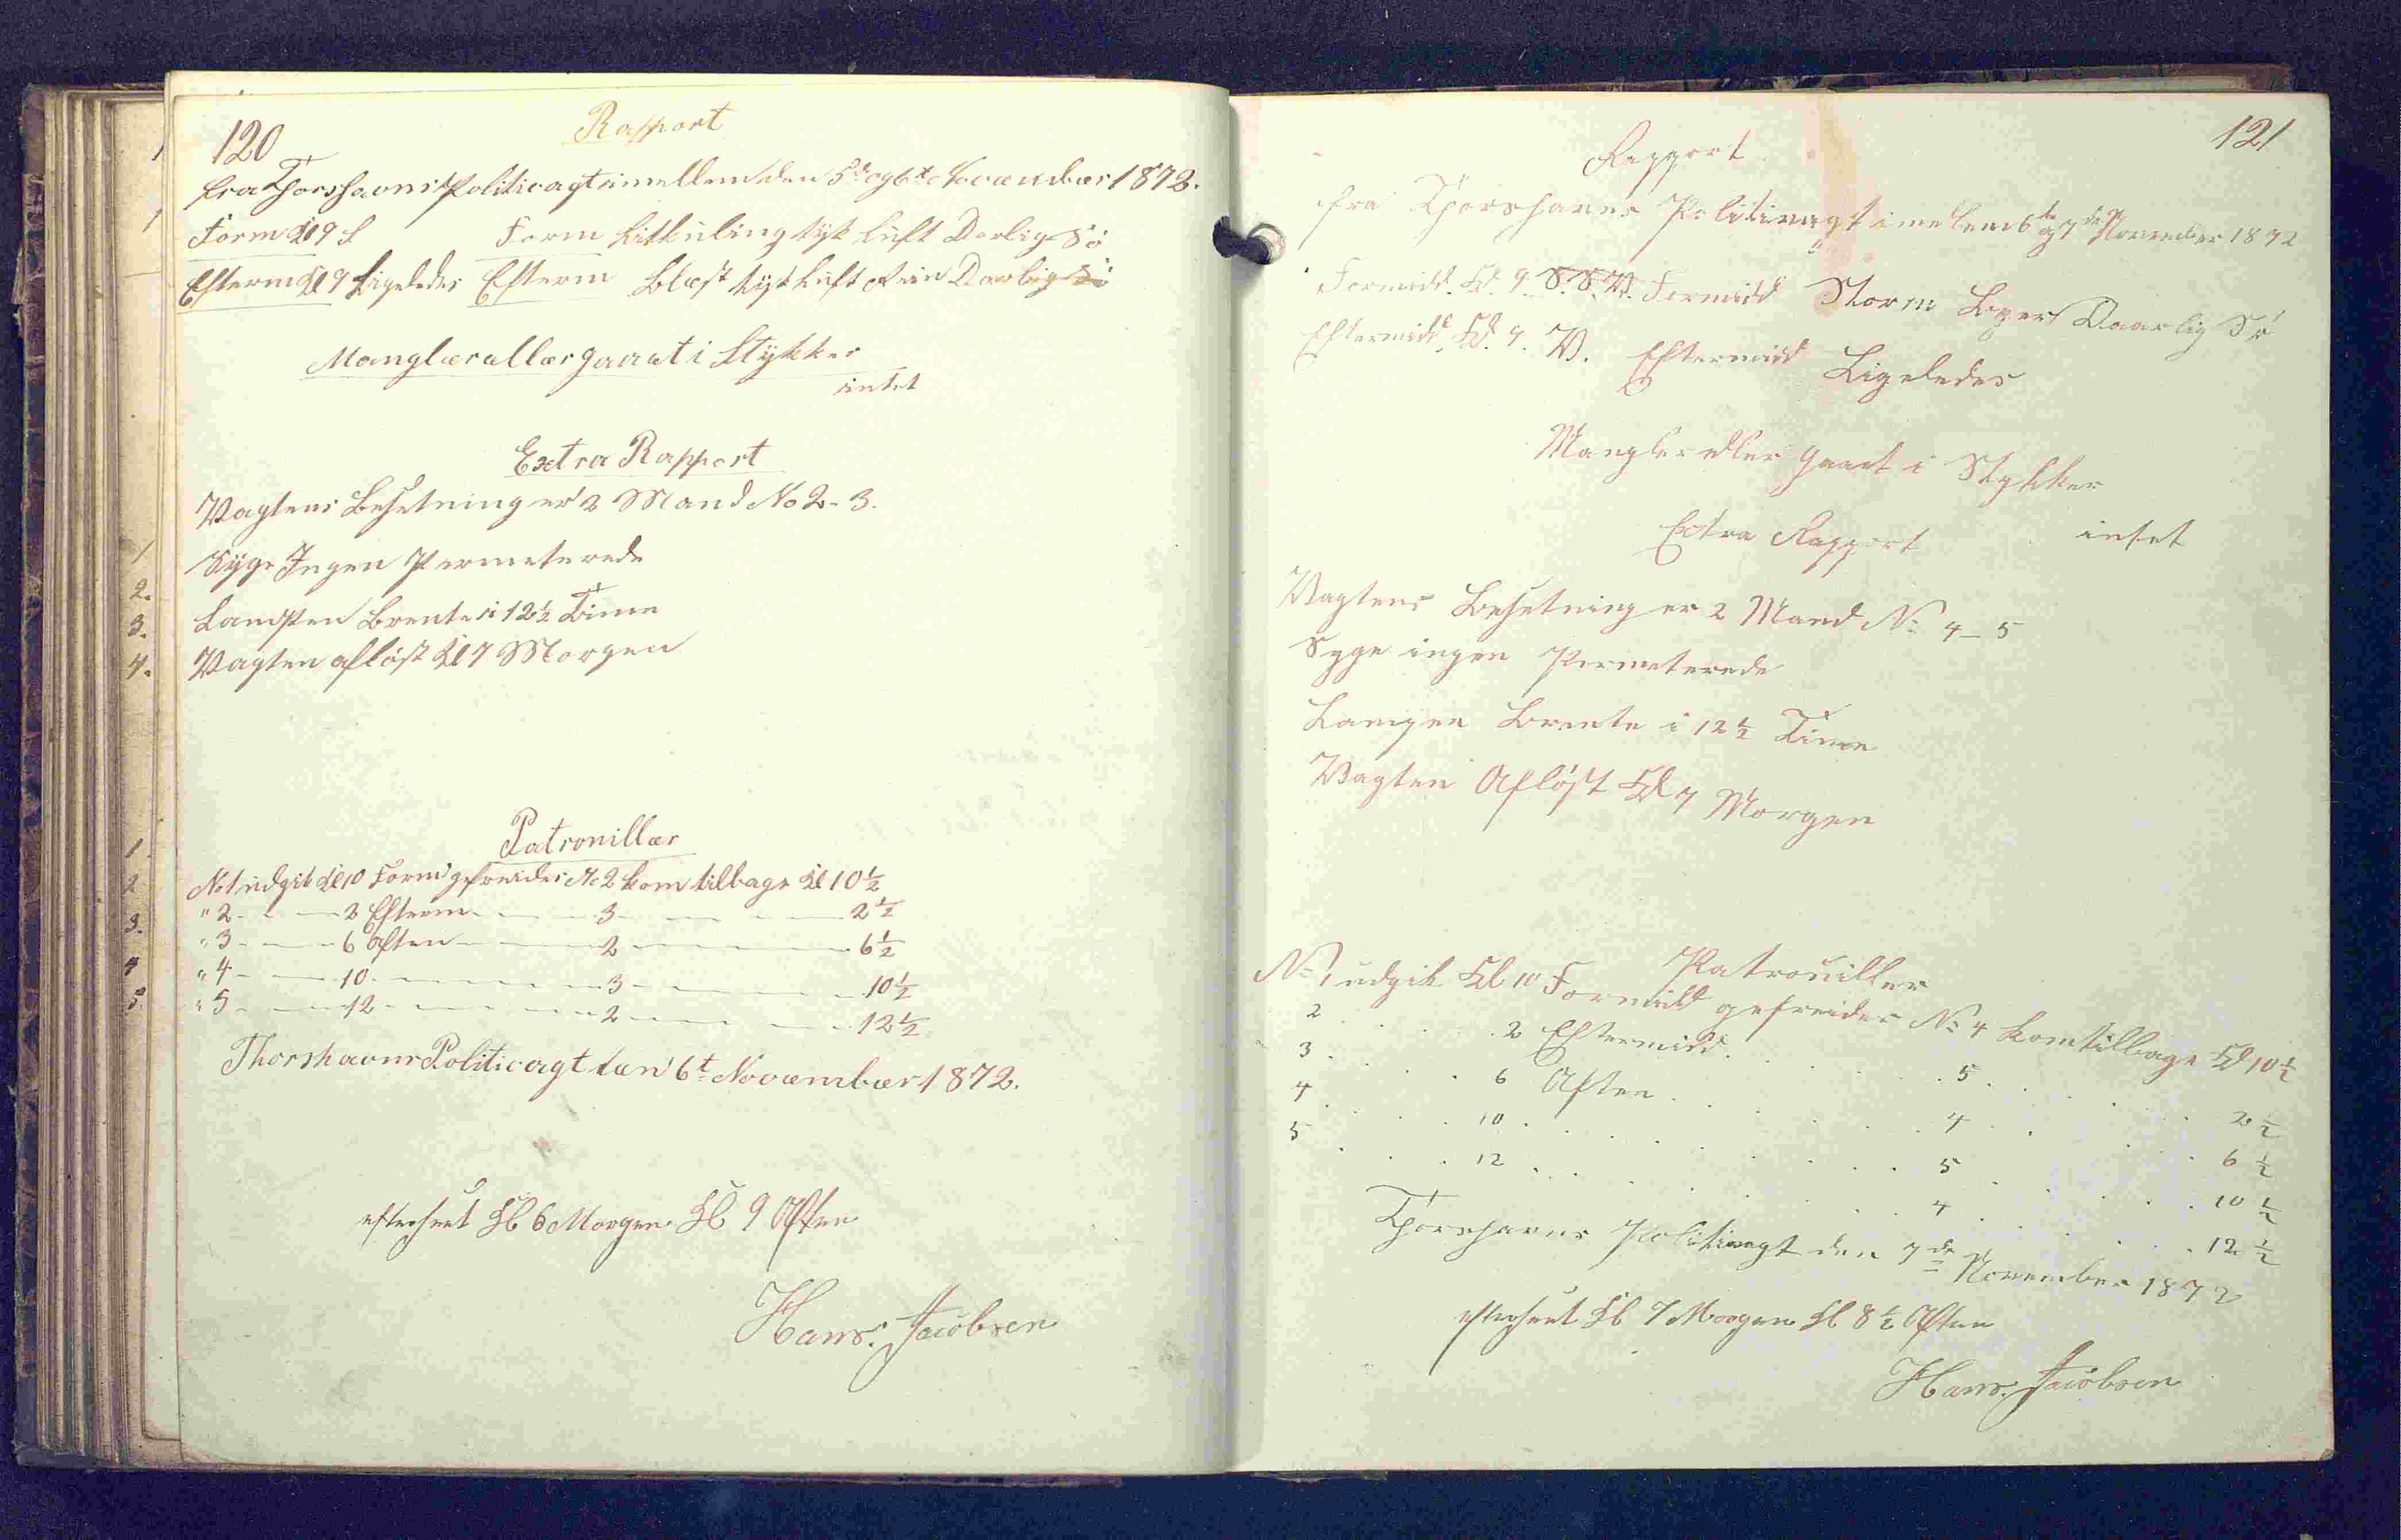 120
Rapport
fra Thorshavns Politivagt imellem den 5t og 6t November 1872.
Form Kl 9 S Form Litkuling tyk Luft Dorlig Sö
Efterm Kl 9 Ligeledes Efterm Blæst tykt Luft Rein Dorlig Sö
Manglær ellær gaaet i Stykker
intet
Extra Rapport
Vagtens Besetning er 2 Mand No 2-3.
Syge Ingen Permeterede
Lampen Brente i 12½ Time
Vagten aflöst Kl 7 Morgen
Patrouillær
No 1 udgik Kl 10 Form gefreider No 2 kom tilbage Kl 10½
" 2 - - 2 Efterm - - 3 - - 2½
" 3 - - 6 Aften - - 2 - - 6½
" 4 - - 10 - - 3 - - 10½
" 5 - - 12 - - 2 - - 12½
Thorshavns Politivagt den 6t Novæmbær 1872.
efterseet Kl 6 Morgen Kl 9 Aften
Hans. Jacobsen
121
Rapport
fra Thorshavns Politivagt imelem 6te og 7de November 1872
Formidd. Kl. 9. S.S.V. Formidd Storm Byger Daarlig Sö
Eftermidd. Kl. 9. V. Eftermidd Ligeledes
Mangler eller Gaaet i Stykker
intet
Extra Rapport
Vagtens Besetning er 2 Mand No 4-5
Syge ingen Permeterede
Lampen Brente i 12½ Time
Vagten Aflöst Kl 7 Morgen
Patrouiller
No 1 udgik Kl 10 Formidd gefreider No 4 kom tilbage Kl 10½
2 . . . 2 Eftermidd. . . 5 . . . 2½
3 . . . 6 Aften . . . 4 . . . 6½
4 . . . 10 . . . 5 . . . 10½
5 . . . 12 . . . 4 . . . 12½
Thorshavns Politivagt den 7de November 1872
efterseet Kl 7 Morgen Kl 8½ Aften
Hans. Jacobsen